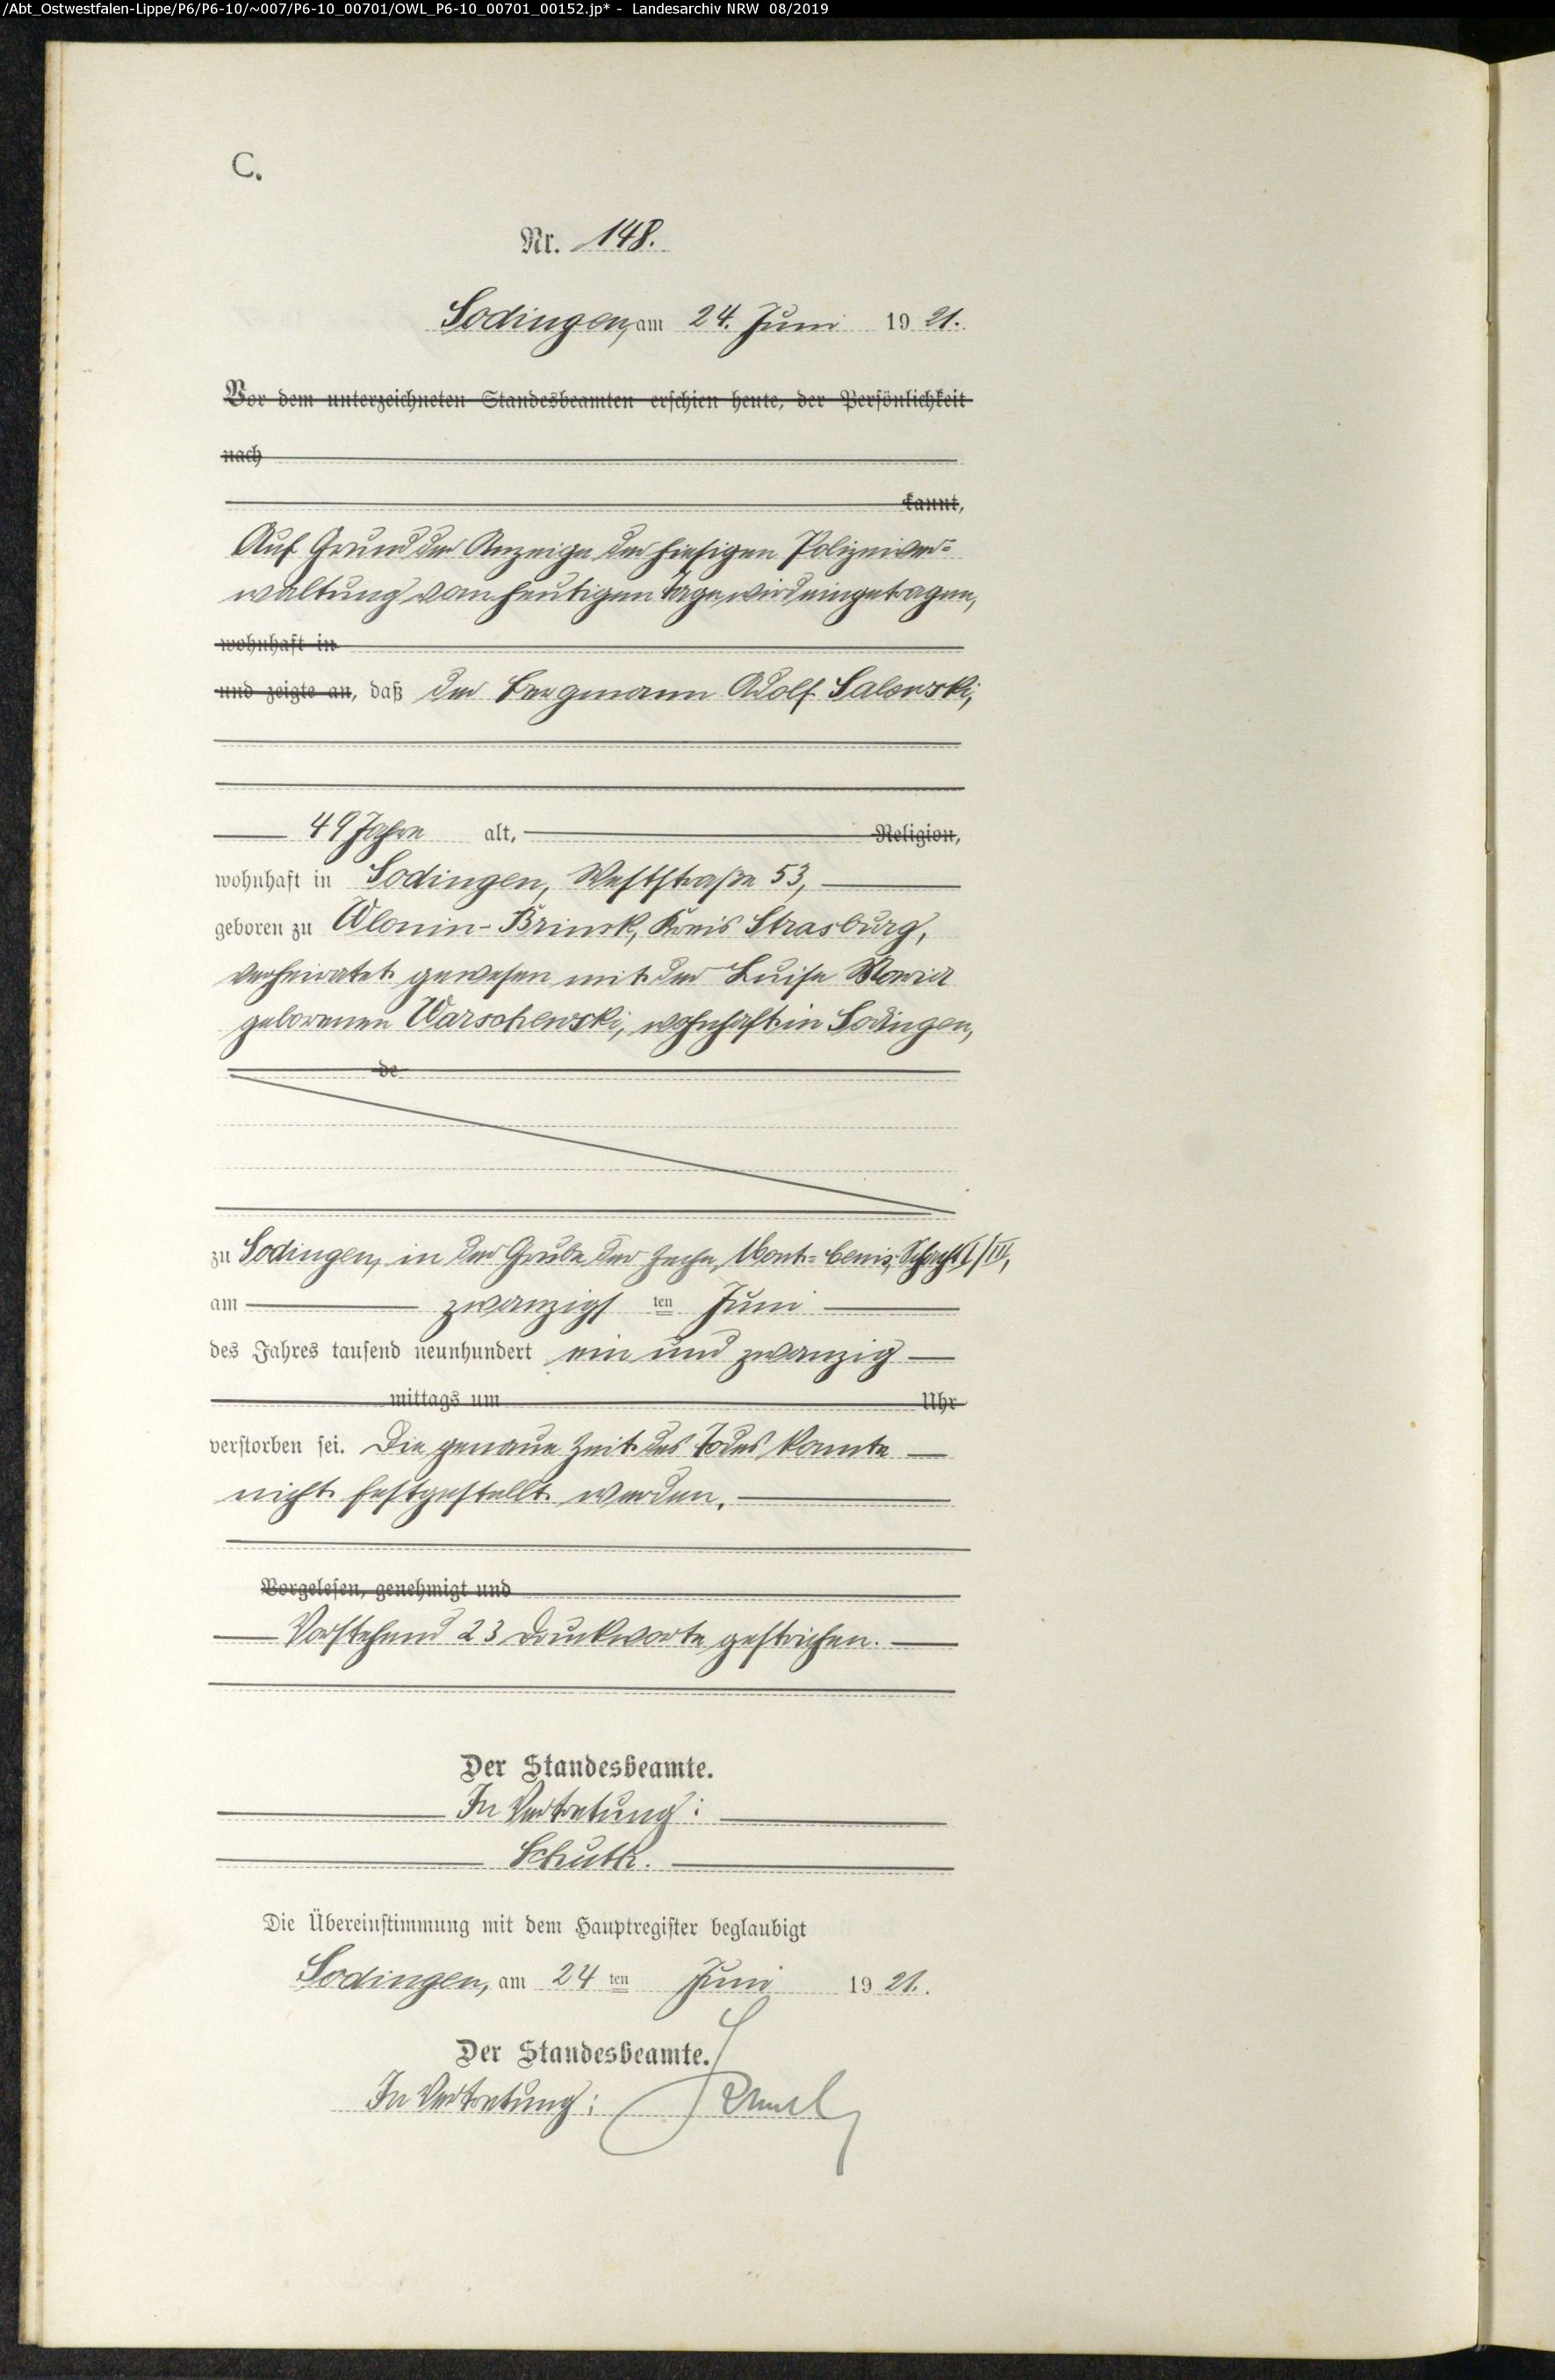 /Abt_Ostwestfalen-Lippe/P6/P6-10/~007/P6-10_00701/OWL_P6-10_00701_00152.jp* - Landesarchiv NRW 08/2019
C.
Nr. 148.
Sodingen, am 24. Juni 1921.
Vor dem unterzeichneten Standesbeamten erschien heute, der Persönlichkeit
nach
kannt,
Auf Grund der Anzeige der hiesigen Polizeiver-
waltung vom heutigen Tage wird eingetragen,
wohnhaft in
und zeigte an, daß der Bergmann Adolf Salewski,
49 Jahre alt, Religion,
wohnhaft in Sodingen, Weststraße 53,
geboren zu Brinsk, Kreis Strasburg,
verheiratet gewesen mit der Luise Maria
geborenen Warschewski, wohnhaft in Sodingen,
de
zu Sodingen, in der Grube der Zeche Mont-Cenis, Schacht I/III,
am zwanzigsten Juni
des Jahres tausend neunhundert ein und zwanzig
mittags um Uhr
verstorben sei. Die genaue Zeit des Todes konnte
nicht festgestellt werden.
Vorgelesen, genehmigt und
Vorstehend 23 Druckworte gestrichen.
Der Standesbeamte.
In Vertretung:
Die Übereinstimmung mit dem Hauptregister beglaubigt
Sodingen, am 24ten Juni 1921.
Der Standesbeamte.
In Vertretung: